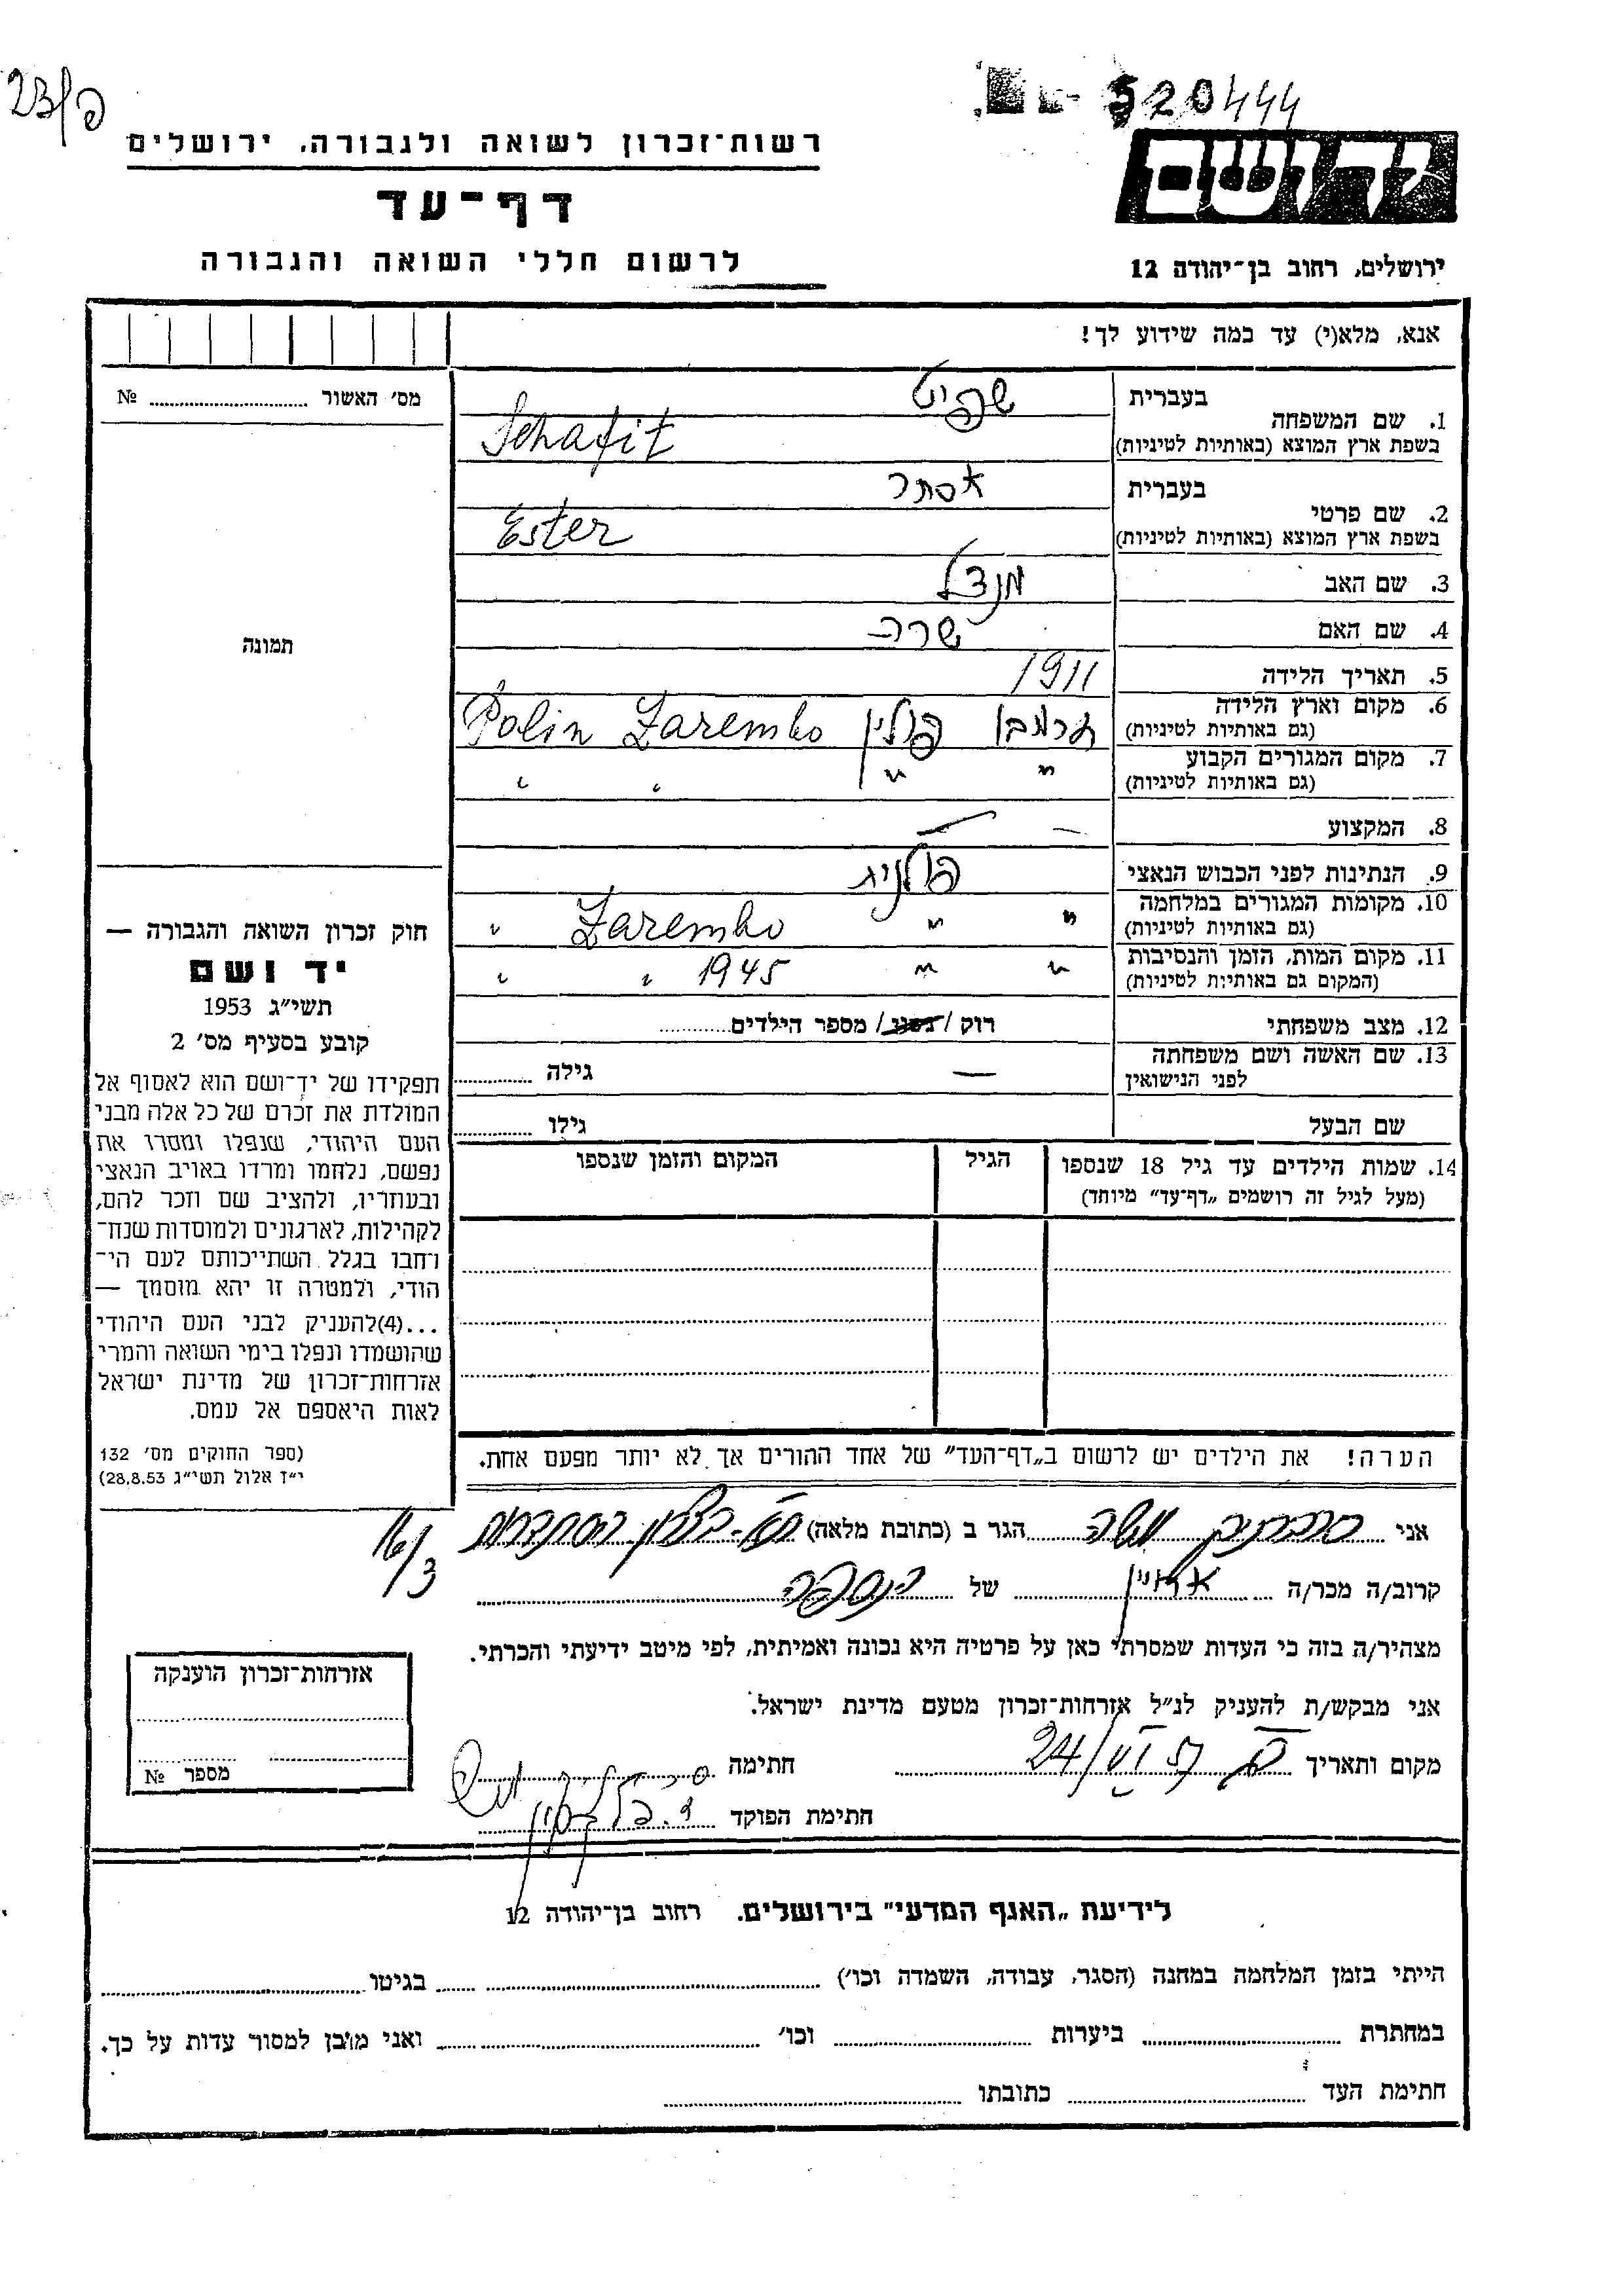 23/פ
520444
יד ושם
רשות־זכרון לשואה ולגבורה, ירושלים
דף־עד
לרשום חללי השואה והגבורה
ירושלים, רחוב בן־יהודה 12
אנא, מלא(י) עד כמה שידוע לך!
מס׳ האשור № ........
1. שם המשפחה בעברית שפיט
בשפת ארץ המוצא (באותיות לטיניות) Schafit
2. שם פרטי בעברית אסתר
בשפת ארץ המוצא (באותיות לטיניות) Ester
3. שם האב מנדל
4. שם האם שרה
5. תאריך הלידה 1911
6. מקום וארץ הלידה פולין Zarembo Polin
(גם באותיות לטיניות)
7. מקום המגורים הקבוע " " " "
(גם באותיות לטיניות)
8. המקצוע — —
9. הנתינות לפני הכבוש הנאצי פולנית
10. מקומות המגורים במלחמה " " Zarembo "
(גם באותיות לטיניות)
11. מקום המות, הזמן והנסיבות " " 1945 " "
(המקום גם באותיות לטיניות)
12. מצב משפחתי רוק / נשוי / מספר הילדים........
13. שם האשה ושם משפחתה — גילה ........
לפני הנישואין
שם הבעל גילו ........
14. שמות הילדים עד גיל 18 שנספו הגיל המקום והזמן שנספו
(מעל לגיל זה רושמים „דף־עד״ מיוחד)
תמונה
חוק זכרון השואה והגבורה —
יד ושם
תשי״ג 1953
קובע בסעיף מס׳ 2
תפקידו של יד־ושם הוא לאסוף אל
המולדת את זכרם של כל אלה מבני
העם היהודי, שנפלו ומסרו את
נפשם, נלחמו ומרדו באויב הנאצי
ובעוזריו, ולהציב שם וזכר להם,
לקהילות, לארגונים ולמוסדות שנח־
רחבו בגלל השתייכותם לעם הי־
הודי, ולמטרה זו יהא מוסמך —
...(4)להעניק לבני העם היהודי
שהושמדו ונפלו בימי השואה והמרי
אזרחות־זכרון של מדינת ישראל
לאות היאספם אל עמם.
(ספר החוקים מס׳ 132
י״ז אלול תשי״ג 28.8.53)
הערה! את הילדים יש לרשום ב„דף־העד״ של אחד ההורים אך לא יותר מפעם אחת.
אני משה הגר ב (כתובת מלאה)
16/3
קרוב/ה מכר/ה של
מצהיר/ה בזה כי העדות שמסרתי כאן על פרטיה היא נכונה ואמיתית, לפי מיטב ידיעתי והכרתי.
אני מבקש/ת להעניק לנ״ל אזרחות־זכרון מטעם מדינת ישראל.
מקום ותאריך 24/VI 57 חתימה
חתימת הפוקד
אזרחות־זכרון הוענקה
מספר №
לידיעת „האגף המדעי״ בירושלים. רחוב בן־יהודה 12
הייתי בזמן המלחמה במחנה (הסגר, עבודה, השמדה וכו׳) ........ בגיטו ........
במחתרת ........ ביערות ........ וכו׳ ........ ואני מוכן למסור עדות על כך.
חתימת העד ........ כתובתו ........